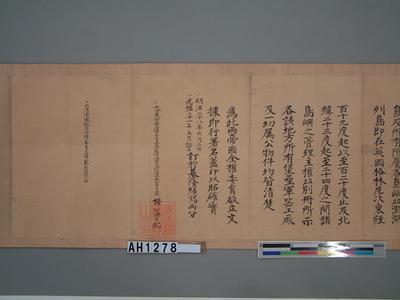 島及所有附屬各島嶼並澎湖
列島即在英國格林尼次東經
百十九度起以至百二十度止及北
緯二十三度起至二十四度之間諸
島嶼之管理主權並別冊所示
各該地方所有堡壘軍器工廠
及一切屬公物件均皆清楚
為此兩帝國全權委員欲立文
據即行署名蓋印以昭確實
明治二十八年六月二日
光緒二十一年五月初十日
訂於基隆繕寫兩分
AH1278